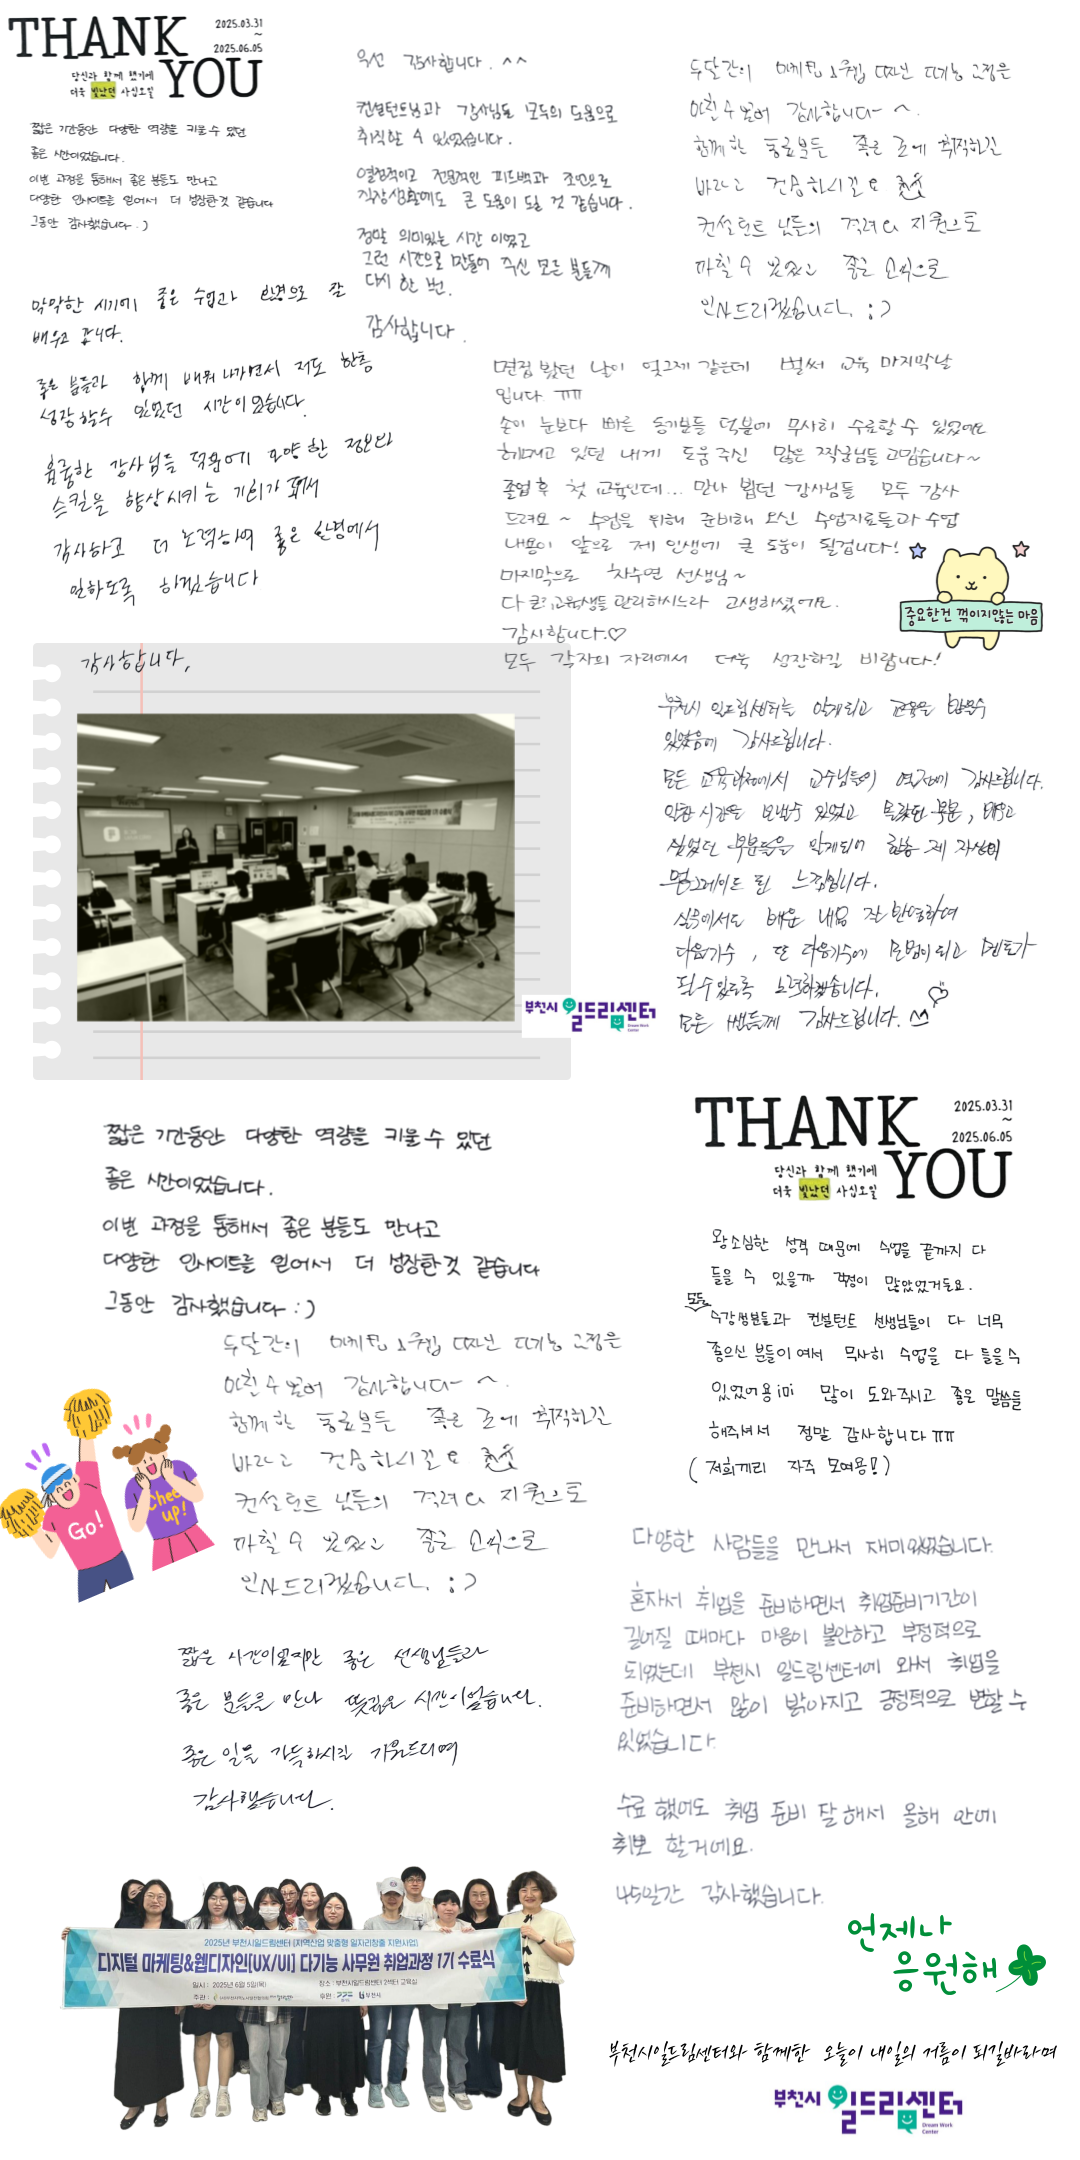 THANK YOU
2025.03.31
~
2025.06.05
당신과 함께 했기에
더욱 빛났던 사십오일
짧은 기간동안 다양한 역량을 키울 수 있었던
좋은 시간이었습니다.
이번 과정을 통해서 좋은 분들도 만나고
다양한 인사이트를 얻어서 더 성장한것 같습니다
그동안 감사했습니다 :)
우선 감사합니다. ^^
컨설턴트님과 강사님들 모두의 도움으로
취직할 수 있었습니다.
열정적이고 전문적인 피드백과 조언으로
직장생활에도 큰 도움이 되실 것 같습니다.
정말 의미있는 시간 이었고
그런 시간으로 만들어 주신 모든 분들께
다시 한 번.
감사합니다.
두달간의 마케팅 1
과정은
마칠 수 있어 감사합니다~ ^.
함께한 동료분들 좋은 곳에 취직하길
바라고 건승하시길요
컨설턴트 님들의 격려와 지원으로
마칠 수 있었고 좋은 소식으로
인사드리겠습니다. :)
막막한 시기에 좋은 수업과 환경으로 잘
배우고 갑니다.
좋은 분들과 함께 배워 나가면서 저도 한층
성장할수 있었던 시간이었습니다.
훌륭한 강사님들 덕분에 다양한 정보와
스킬을 향상시키는 기회가 되어서
감사하고 더 노력하여 좋은 환경에서
일하도록 하겠습니다
감사합니다,
면접 봤던 날이 엊그제 같은데 벌써 교육 마지막날
입니다 ㅠㅠ
손이 눈보다 빠른 동기분들 덕분에 무사히 수료할 수 있었어요
헤매고 있던 내게 도움 주신 많은 짝궁님들 고맙습니다~
졸업 후 첫 교육인데... 만나 뵙던 강사님들 모두 감사
드려요 ~ 수업을 위해 준비해 오신 수업자료들과 수업
내용이 앞으로 제 인생에 큰 도움이 될겁니다!
마지막으로 차수연 선생님~
다 큰 교육생들 관리하시느라 고생하셨어요.
감사합니다.♡
모두 각자의 자리에서 더욱 성장하길 바랍니다!
중요한건 꺾이지않는 마음
부천시 일드림센터를 알게되고 교육을 받을수
있었음에 감사드립니다.
모든 교육과정에서 교수님들의 열정에 감사드립니다.
시간을 보낼수 있었고 몰랐던 부분, 배우고
싶었던 부분들을 알게되어 한층 제 자신이
업그레이드 된 느낌입니다.
실무에서도 배운 내용 잘 반영하여
다음기수, 또 다음기수에 모범이 되고 멘토가
될 수 있도록 노력하겠습니다.
모든 쌤들께 감사드립니다.
부천시 일드림센터
Dream Work
Center
THANK YOU
2025.03.31
~
2025.06.05
당신과 함께 했기에
더욱 빛났던 사십오일
짧은 기간동안 다양한 역량을 키울 수 있었던
좋은 시간이었습니다.
이번 과정을 통해서 좋은 분들도 만나고
다양한 인사이트를 얻어서 더 성장한것 같습니다
그동안 감사했습니다 :)
두달간의 마케팅 1
과정은
마칠 수 있어 감사합니다~ ^.
함께한 동료분들 좋은 곳에 취직하길
바라고 건승하시길요
컨설턴트 님들의 격려와 지원으로
마칠 수 있었고 좋은 소식으로
인사드리겠습니다. :)
Go!
Cheer
up!
왕소심한 성격 때문에 수업을 끝까지 다
들을 수 있을까 걱정이 많았었거든요.
모든
수강생분들과 컨설턴트 선생님들이 다 너무
좋으신 분들이여서 무사히 수업을 다 들을수
있었어용 많이 도와주시고 좋은 말씀들
해주셔서 정말 감사합니다 ㅠㅠ
(저희끼리 자주 모여용!)
짧은 시간이었지만 좋은 선생님들과
좋은 분들을 만나 뜻깊은 시간이었습니다.
좋은 일들 가득하시길 기원드리며
감사했습니다.
다양한 사람들을 만나서 재미있었습니다.
혼자서 취업을 준비하면서 취업준비기간이
길어질 때마다 마음이 불안하고 부정적으로
되었는데 부천시 일드림센터에 와서 취업을
준비하면서 많이 밝아지고 긍정적으로 변할 수
있었습니다.
수료 했어도 취업 준비 잘 해서 올해 안에
취뽀 할거에요.
45일간 감사했습니다.
2025년 부천시일드림센터 [지역산업 맞춤형 일자리창출 지원사업]
디지털 마케팅&웹디자인(UX/UI) 다기능 사무원 취업과정 1기 수료식
일시 : 2025년 6월 5일(목)
장소 : 부천시일드림센터 2섹터 교육실
주관 :
후원 :
부천시
언제나
응원해
부천시일드림센터와 함께한 오늘이 내일의 거름이 되길바라며
부천시 일드림센터
Dream Work
Center